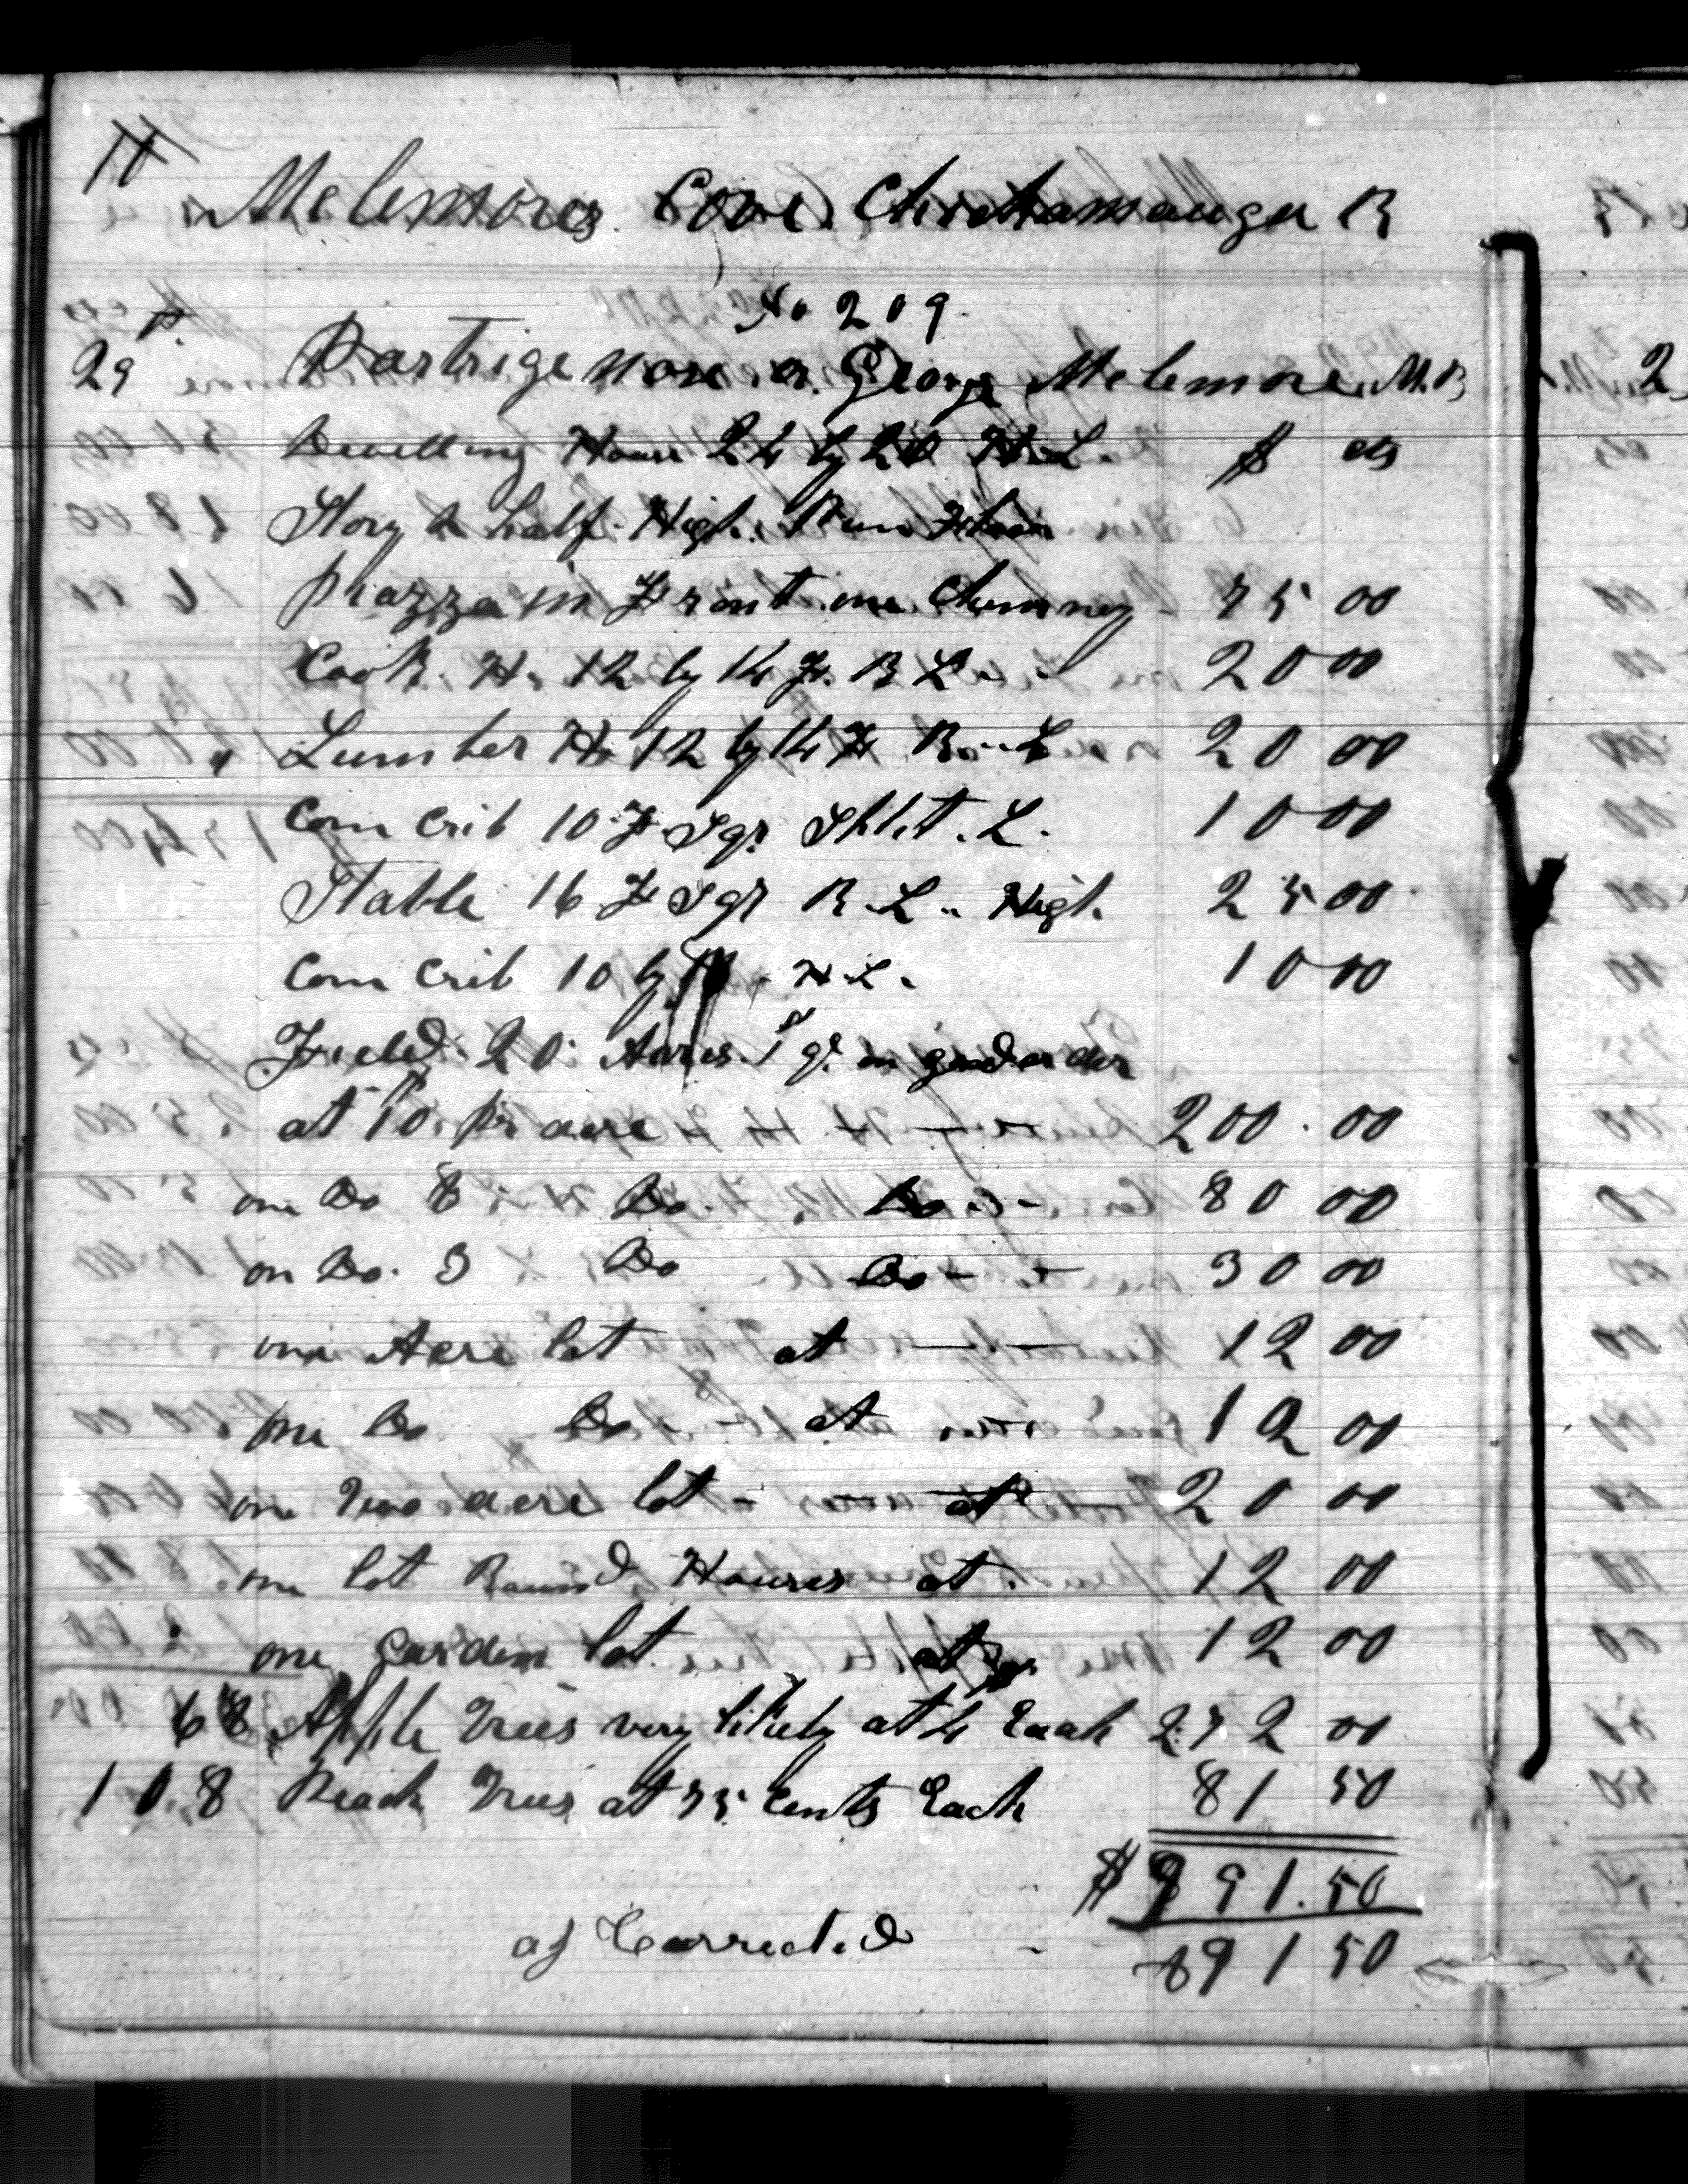 Mclemores Cove Chickamauga R
No 209
29 Partrige nose or George Mclemore M.B
Dwelling House 24 by 20 H.L. $ cts
Story & half High. Pun Floor
piazza in Front one Chimney - 75 00
Cook H. 12 by 14 F. R L - 20 00
Lumber H. 12 by 14 F R. L 20 00
Corn Crib 10 F Sqr Splt. L. 10 00
Stable 16 F Sqr R. L - High 25 00
Corn Crib 10 by - H L. 10 00
Field 20 Acres in good order
at 10. pr acre 200.00
one Do 8 Do. Do - 80 00
on Do. 3 Do Do - - 30 00
one Acre lot at - - 12 00
one Do Do at 12 00
one two acre lot - at 20 00
one lot Round Houses at 12 00
one garden lot at 12 00
68 Apple Trees very likely at 4 Each 272 00
108 Peach Trees at 75 Cents Each 81 50
$ 991.50
as Corrected - 891 50